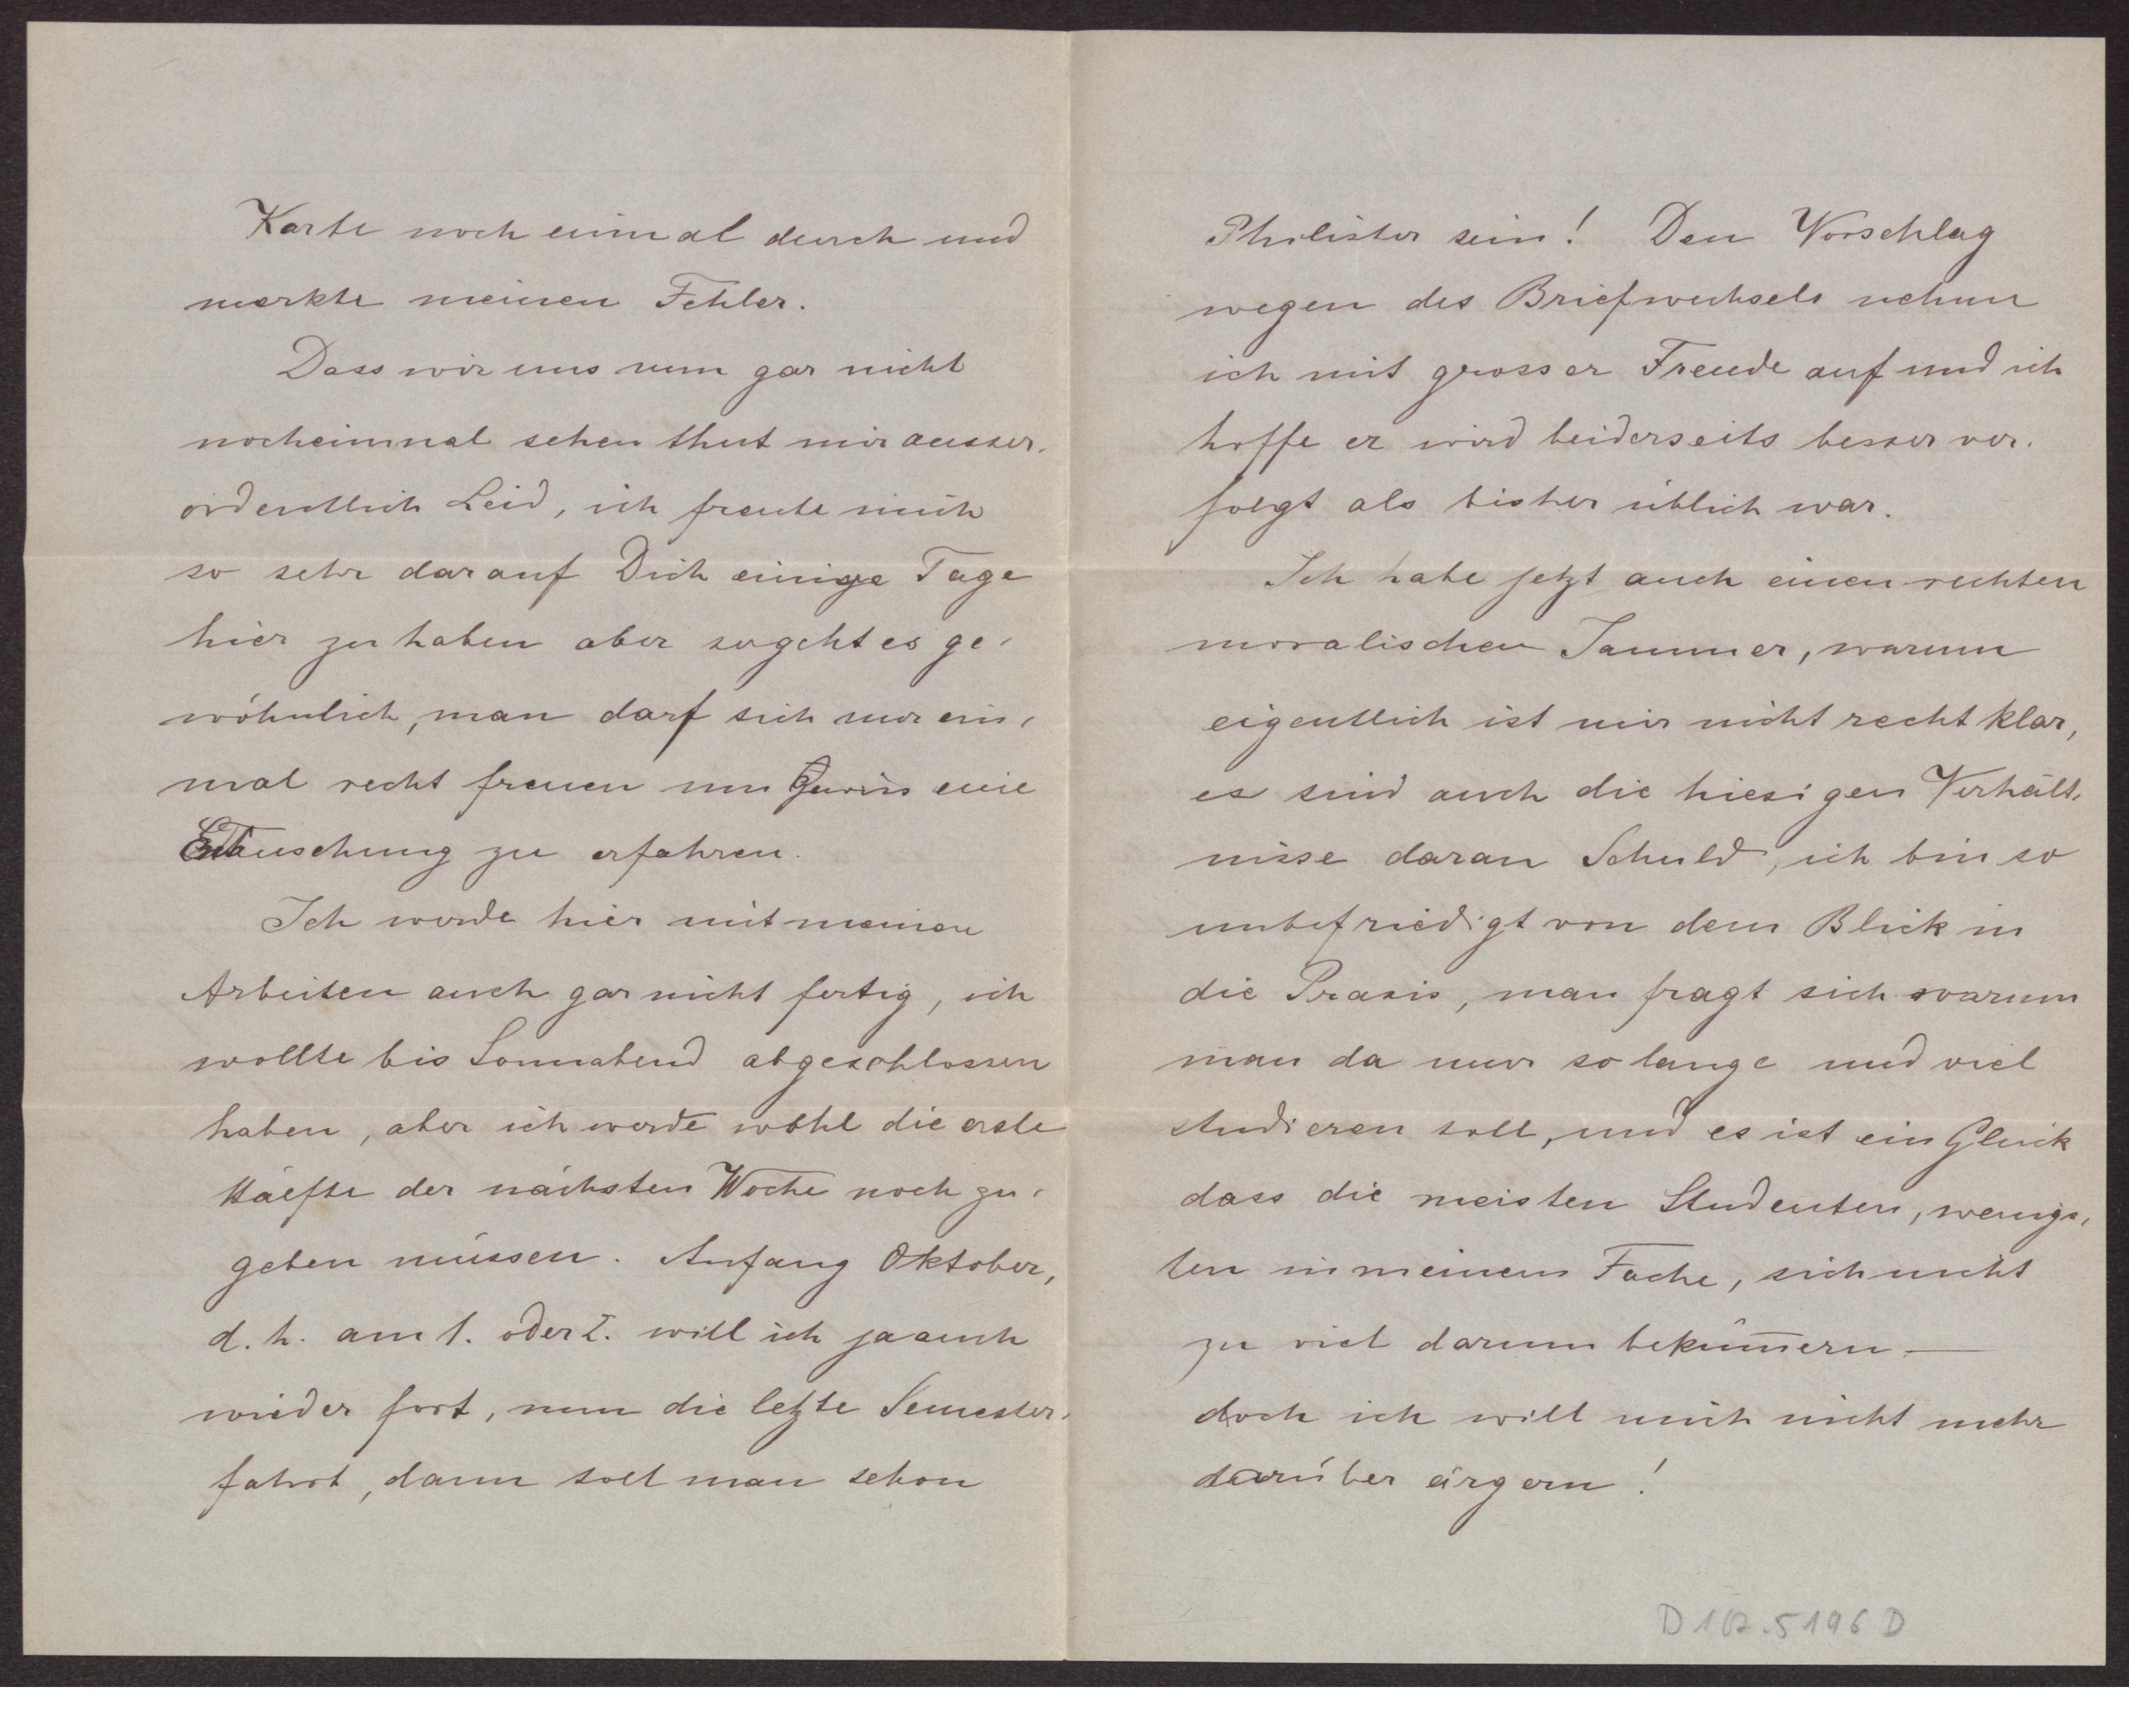 Karte noch einmal durch und
merkte meinen Fehler.
Dass wir uns nun gar nicht
nocheinmal sehen thut mir ausser-
ordentlich Leid, ich freute mich
so sehr darauf Dich einige Tage
hier zu haben aber so geht es ge-
wöhnlich, man darf sich nur ein-
mal recht freuen um gewiss eine
Enttäuschung zu erfahren.
Ich werde hier mit meinen
Arbeiten auch gar nicht fertig, ich
wollte bis Sonnabend abgeschlossen
haben, aber ich werde wohl die erste
Häelfte der nächsten Woche noch zu-
geben müssen. Anfang Oktober,
d. h. am 1. oder 2. will ich ja auch
wieder fort, nun die letzte Semester-
fahrt, dann soll man schon
Philister sein! Den Vorschlag
wegen des Briefwechsels nehme
ich mit grosser Freude auf und ich
hoffe er wird beiderseits besser ver-
folgt als bisher üblich war.
Ich habe jetzt auch einen rechten
moralischen Jammer, warum
eigentlich ist mir nicht recht klar,
es sind auch die hiesigen Verhält-
nisse daran Schuld, ich bin so
unbefriedigt von dem Blick in
die Praxis, man fragt sich warum
man da nur so lange und viel
studieren soll, und es ist ein Glück
dass die meisten Studenten, wenigs-
ten in meinem Fache, sich nicht
zu viel darum bekümm̅ern —
doch ich will mich nicht mehr
darüber ärgern!
D 107.5196 D